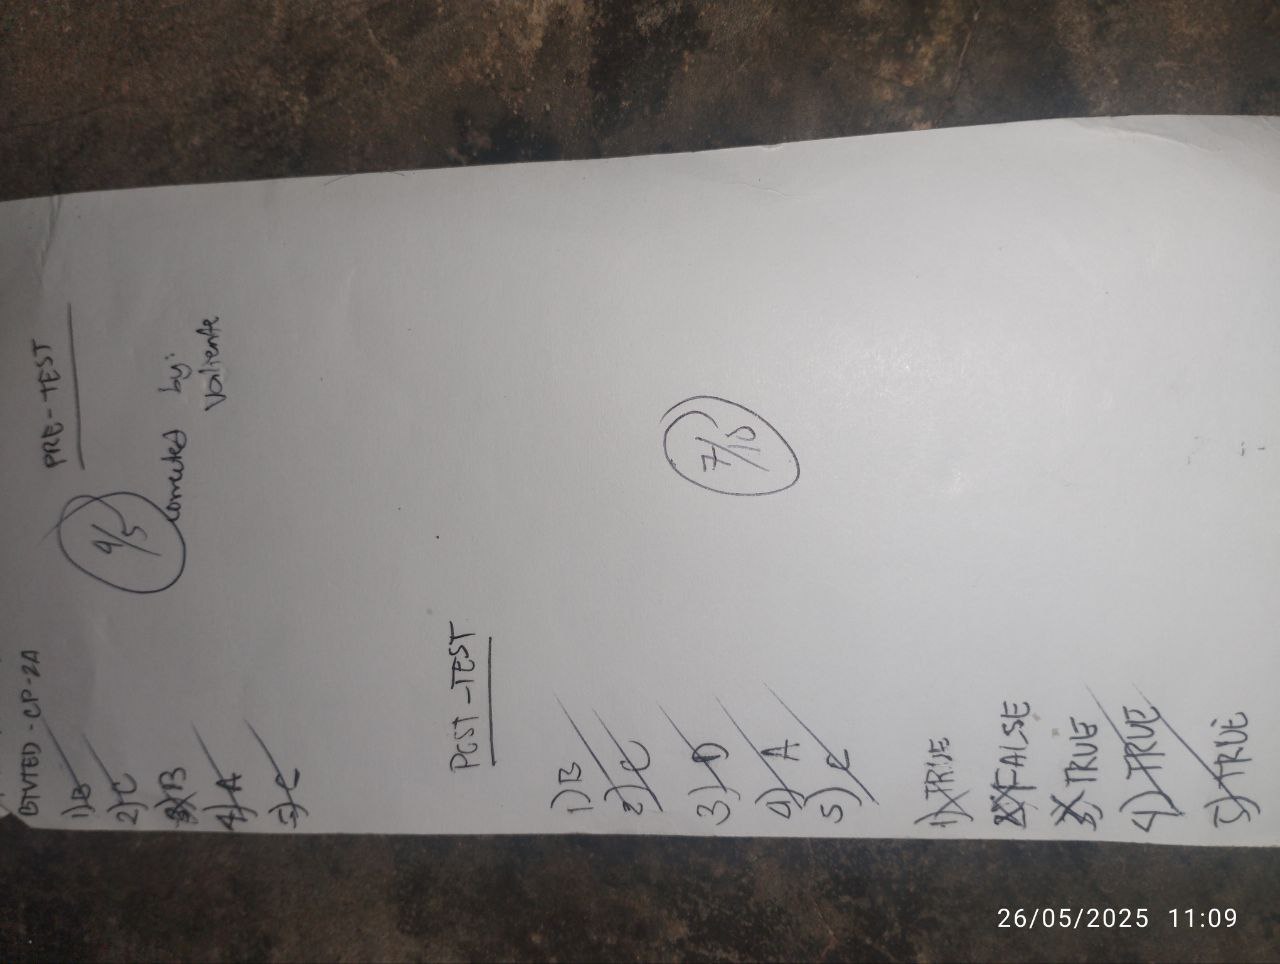 BTVTED - CP-2A
PRE-TEST
1) B
4/5
2) C
3) B
corrected by:
Valiente
4) A
5) C
POST-TEST
1) B
2) C
3) D
7/10
4) A
5) C
1) TRUE
2) FALSE
3) TRUE
4) TRUE
5) TRUE
26/05/2025 11:09